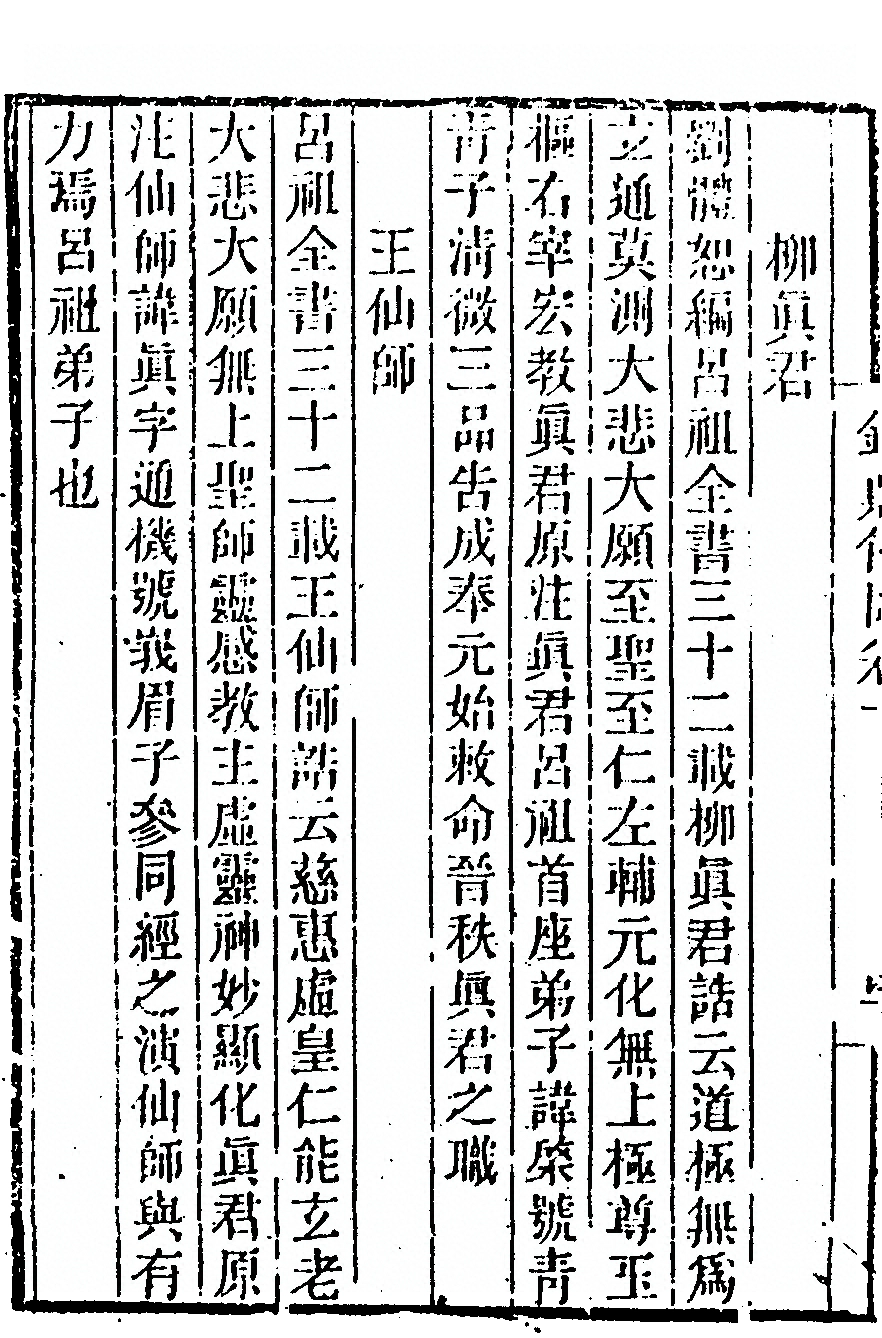 柳眞君
劉體恕編呂祖全書三十二載柳眞君誥云道極無爲
玄通莫測大悲大願至聖至仁左輔元化無上極尊玉
樞右宰宏教眞君原注眞君呂祖首座弟子諱棨號青
青子清微三品告成奉元始敕命晉秩眞君之職
王仙師
呂祖全書三十二載王仙師誥云慈惠虛皇仁能玄老
大悲大願無上聖師靈感教主虛靈神妙顯化眞君原
注仙師諱眞字通機號峩眉子參同經之演仙師與有
力焉呂祖弟子也